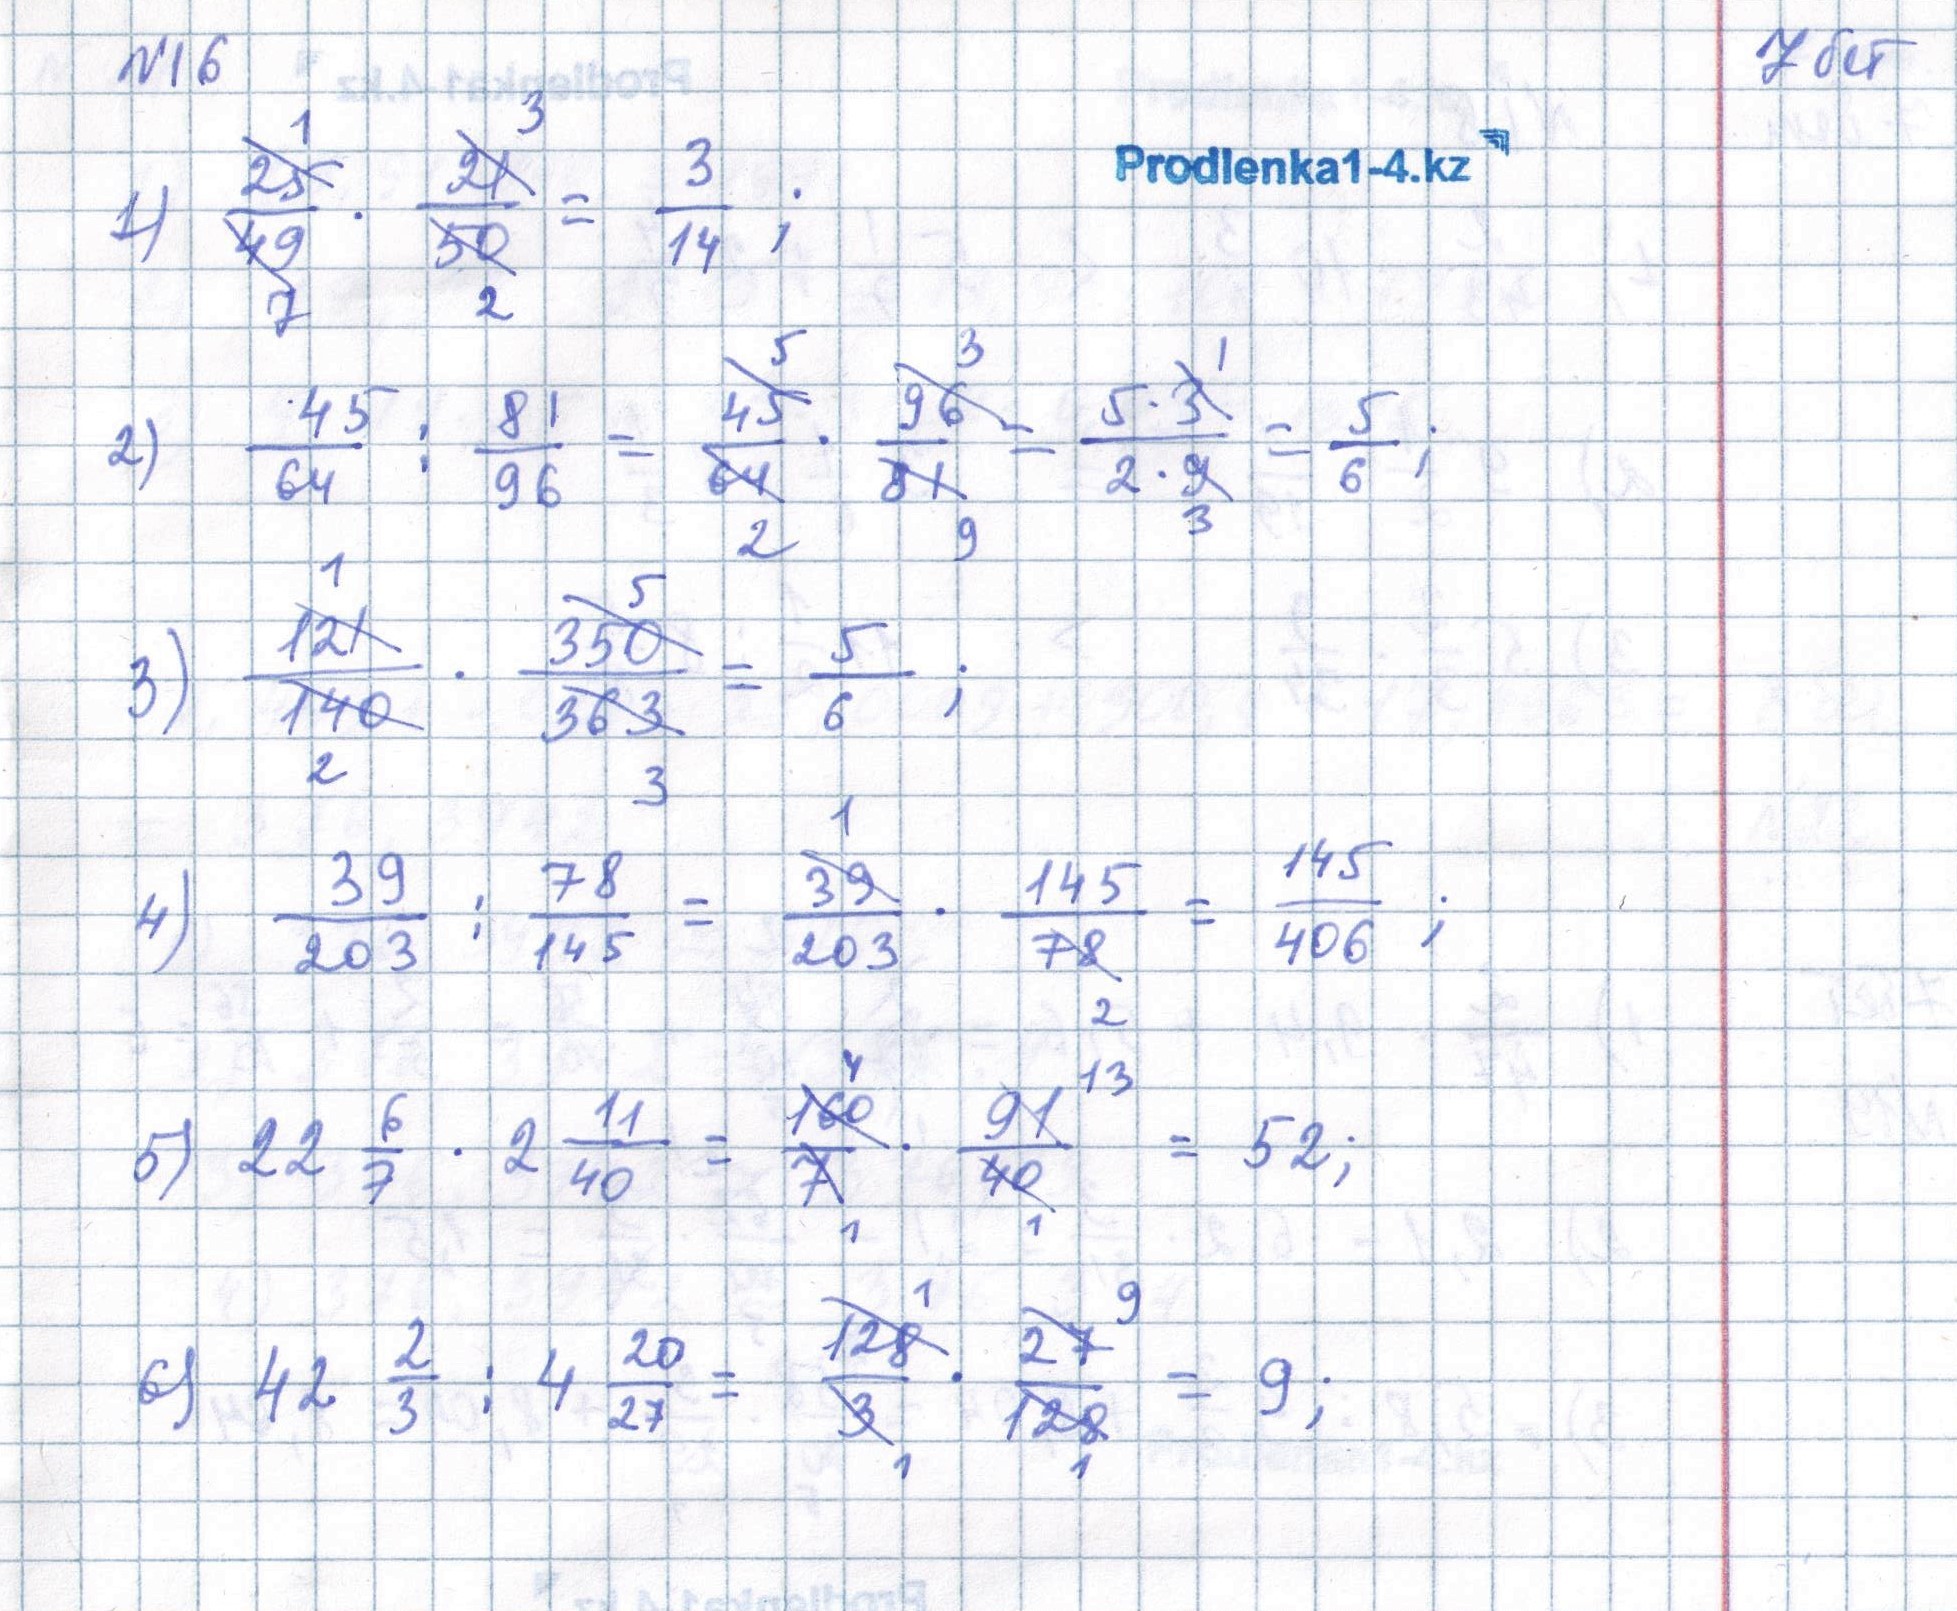 №16 7 бет
Prodlenka1-4.kz
1) 25/49 · 21/50 = 3/14 ;
2) 45/64 : 81/96 = 45/64 · 96/81 = 5·3/2·9 = 5/6 ;
3) 121/140 · 350/363 = 5/6 ;
4) 39/203 : 78/145 = 39/203 · 145/78 = 145/406 ;
5) 22 6/7 · 2 11/40 = 160/7 · 91/40 = 52;
6) 42 2/3 : 4 20/27 = 128/3 · 27/128 = 9;